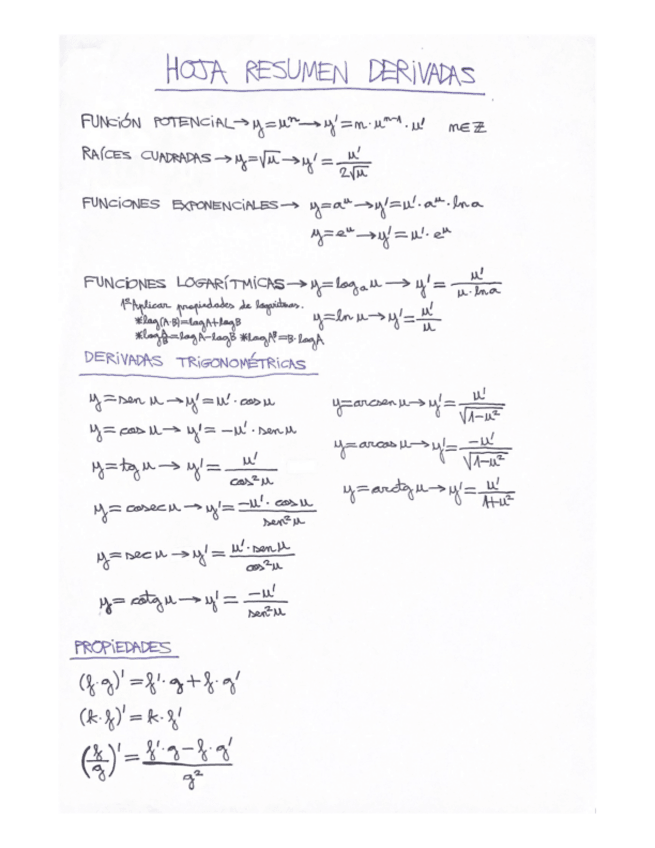 HOJA RESUMEN DERIVADAS
FUNCIÓN POTENCIAL → y = uⁿ → y' = n · uⁿ⁻¹ · u'   n ∈ ℤ
RAÍCES CUADRADAS → y = √u → y' = u' / 2√u
FUNCIONES EXPONENCIALES → y = aᵘ → y' = u' · aᵘ · ln a
y = eᵘ → y' = u' · eᵘ
FUNCIONES LOGARÍTMICAS → y = logₐ u → y' = u' / u · ln a
1º Aplicar propiedades de logaritmos.
* log(A·B) = log A + log B
y = ln u → y' = u' / u
* log A/B = log A − log B * log Aᴮ = B · log A
DERIVADAS TRIGONOMÉTRICAS
y = sen u → y' = u' · cos u
y = cos u → y' = −u' · sen u
y = tg u → y' = u' / cos² u
y = cosec u → y' = −u' · cos u / sen² u
y = sec u → y' = u' · sen u / cos² u
y = cotg u → y' = −u' / sen² u
y = arcsen u → y' = u' / √1−u²
y = arcos u → y' = −u' / √1−u²
y = arctg u → y' = u' / 1+u²
PROPIEDADES
(f · g)' = f' · g + f · g'
(k · f)' = k · f'
(f/g)' = f' · g − f · g' / g²